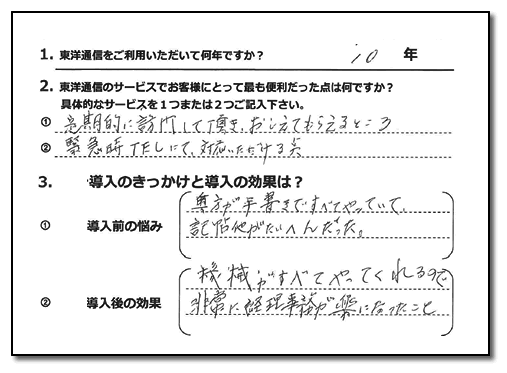 1. 東洋通信をご利用いただいて何年ですか？ 10 年
2. 東洋通信のサービスでお客様にとって最も便利だった点は何ですか？
具体的なサービスを１つまたは２つご記入下さい。
① 定期的に訪問して頂き、おしえてもらえるところ
② 緊急時TELにて、対応いただける点
3. 導入のきっかけと導入の効果は？
① 導入前の悩み
奥方が手書きですべてやっていて、
記帖他がたいへんだった。
② 導入後の効果
機械がすべてやってくれるので
非常に経理事務が楽になったこと